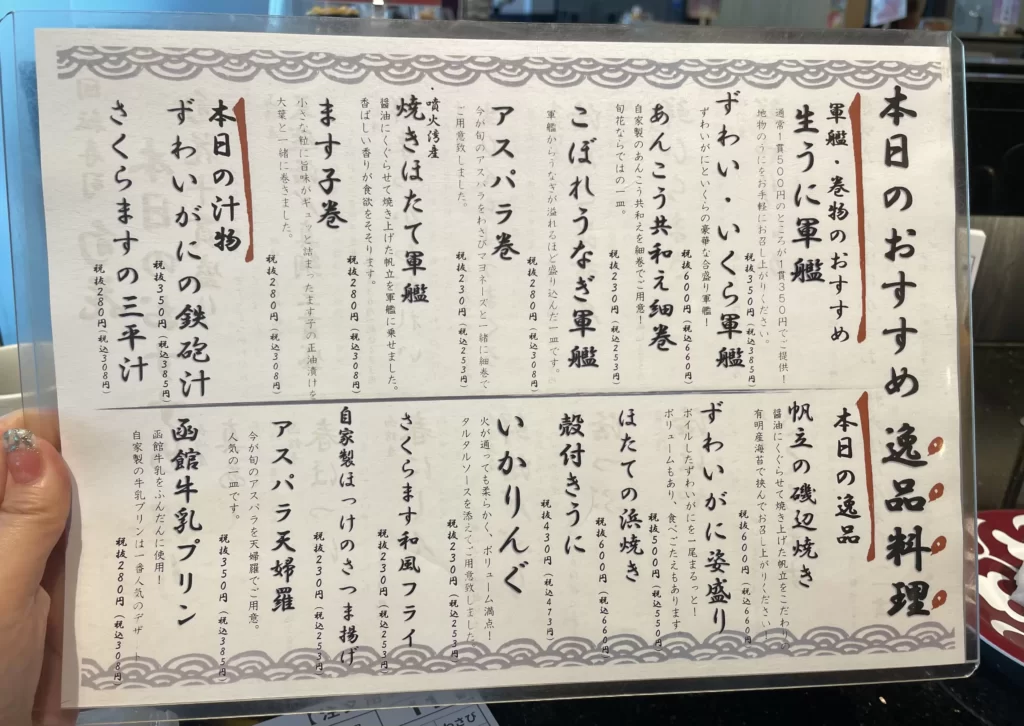 本日のおすすめ 逸品料理
軍艦・巻物のおすすめ
生うに軍艦
通常1貫500円のところが1貫350円でご提供!
地物のうにをお手軽にお召し上がりください。
税抜350円(税込385円)
ずわい・いくら軍艦
ずわいがにといくらの豪華な合盛り軍艦!
税抜600円(税込660円)
あんこう共和え細巻
自家製のあんこう共和えを細巻でご用意!
旬花ならではの一皿。
税抜230円(税込253円)
こぼれうなぎ軍艦
軍艦からうなぎが溢れるほど盛り込んだ一皿です。
税抜280円(税込308円)
アスパラ巻
今が旬のアスパラをわさびマヨネーズと一緒に細巻で
ご用意致しました。
税抜230円(税込253円)
噴火湾産
焼きほたて軍艦
醤油にくぐらせて焼き上げた帆立を軍艦に乗せました。
香ばしい香りが食欲をそそります。
税抜280円(税込308円)
ます子巻
小さな粒に旨味がギュッと詰まったます子の正油漬けを
大葉と一緒に巻きました。
税抜280円(税込308円)
本日の汁物
ずわいがにの鉄砲汁
税抜350円(税込385円)
さくらますの三平汁
税抜280円(税込308円)
本日の逸品
帆立の磯辺焼き
醤油にくぐらせて焼き上げた帆立をこだわりの
有明産海苔で挟んでお召し上がりください!
税抜600円(税込660円)
ずわいがに姿盛り
ボイルしたずわいがにを一尾まるっと!
ボリュームもあり、食べごたえもあります
税抜500円(税込550円)
ほたての浜焼き
税抜600円(税込660円)
殻付きうに
税抜430円(税込473円)
いかりんぐ
火が通っても柔らかく、ボリューム満点!
タルタルソースを添えてご用意致しました
税抜230円(税込253円)
さくらます和風フライ
税抜230円(税込253円)
自家製ほっけのさつま揚げ
税抜230円(税込253円)
アスパラ天婦羅
今が旬のアスパラを天婦羅でご用意。
人気の一皿です。
税抜350円(税込385円)
函館牛乳プリン
函館牛乳をふんだんに使用!
自家製の牛乳プリンは一番人気のデザート!
税抜280円(税込308円)